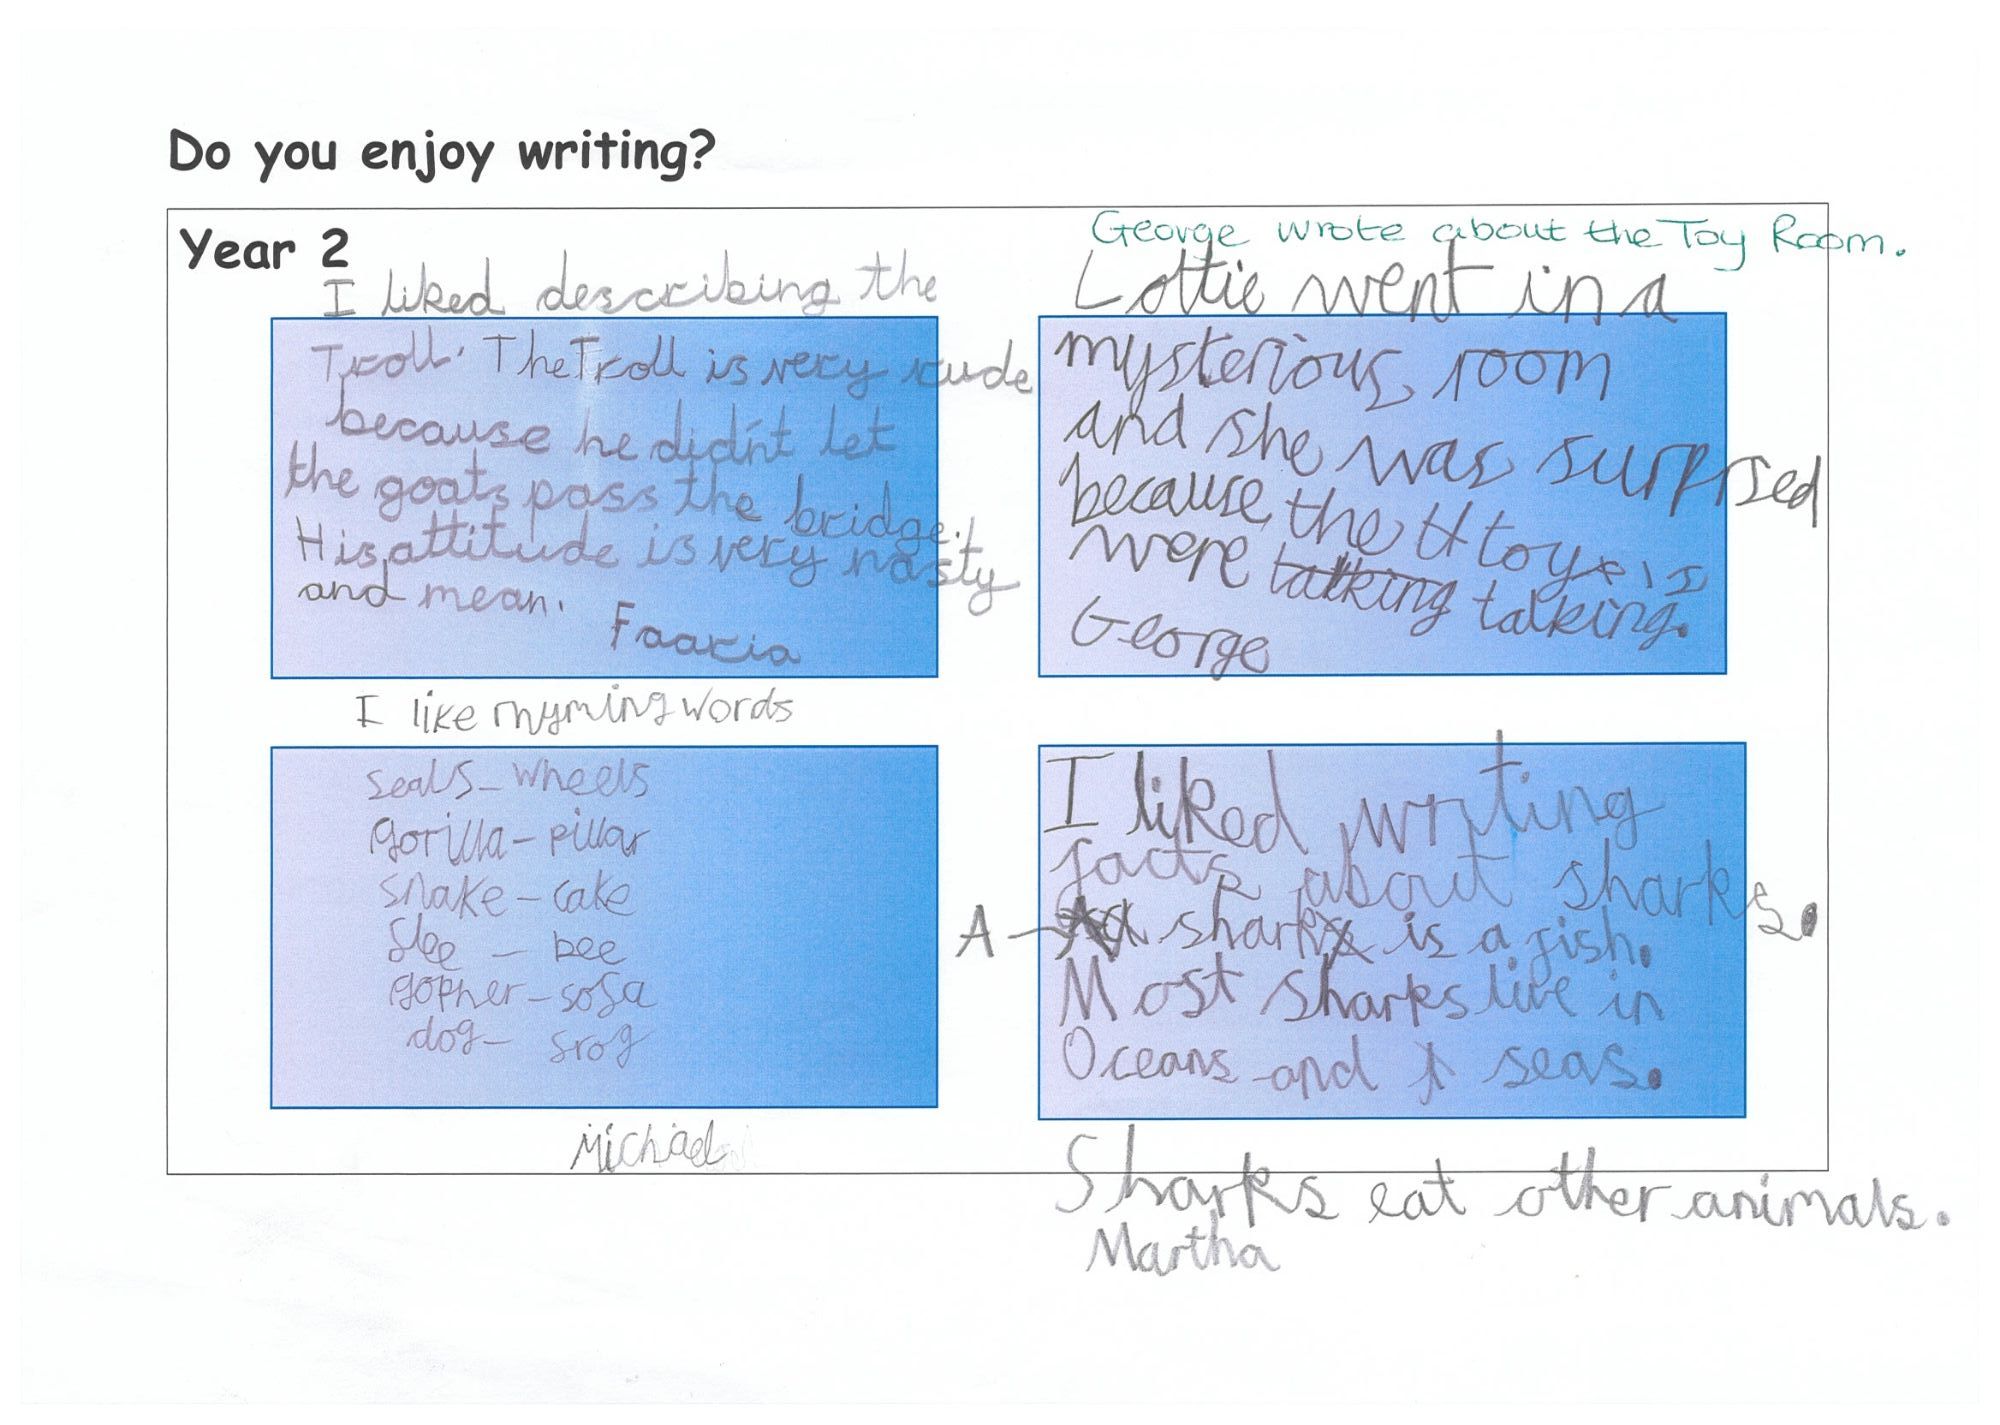 Do you enjoy writing?
Year 2
I liked describing the
Troll. The Troll is very rude
because he did'nt let
the goats pass the bridge.
His attitude is very nasty
and mean.
Faaria
George wrote about the Toy Room.
Lottie went in a
mysterious room
and she was surprised
because the toys
were talking talking.
George
I like rhyming words
seals - wheels
gorilla - pillar
snake - cake
bee
gopher - sofa
dog - frog
Michael
I liked writing
facts about sharks.
A shark is a fish.
Most sharks live in
Oceans and seas.
Sharks eat other animals.
Martha